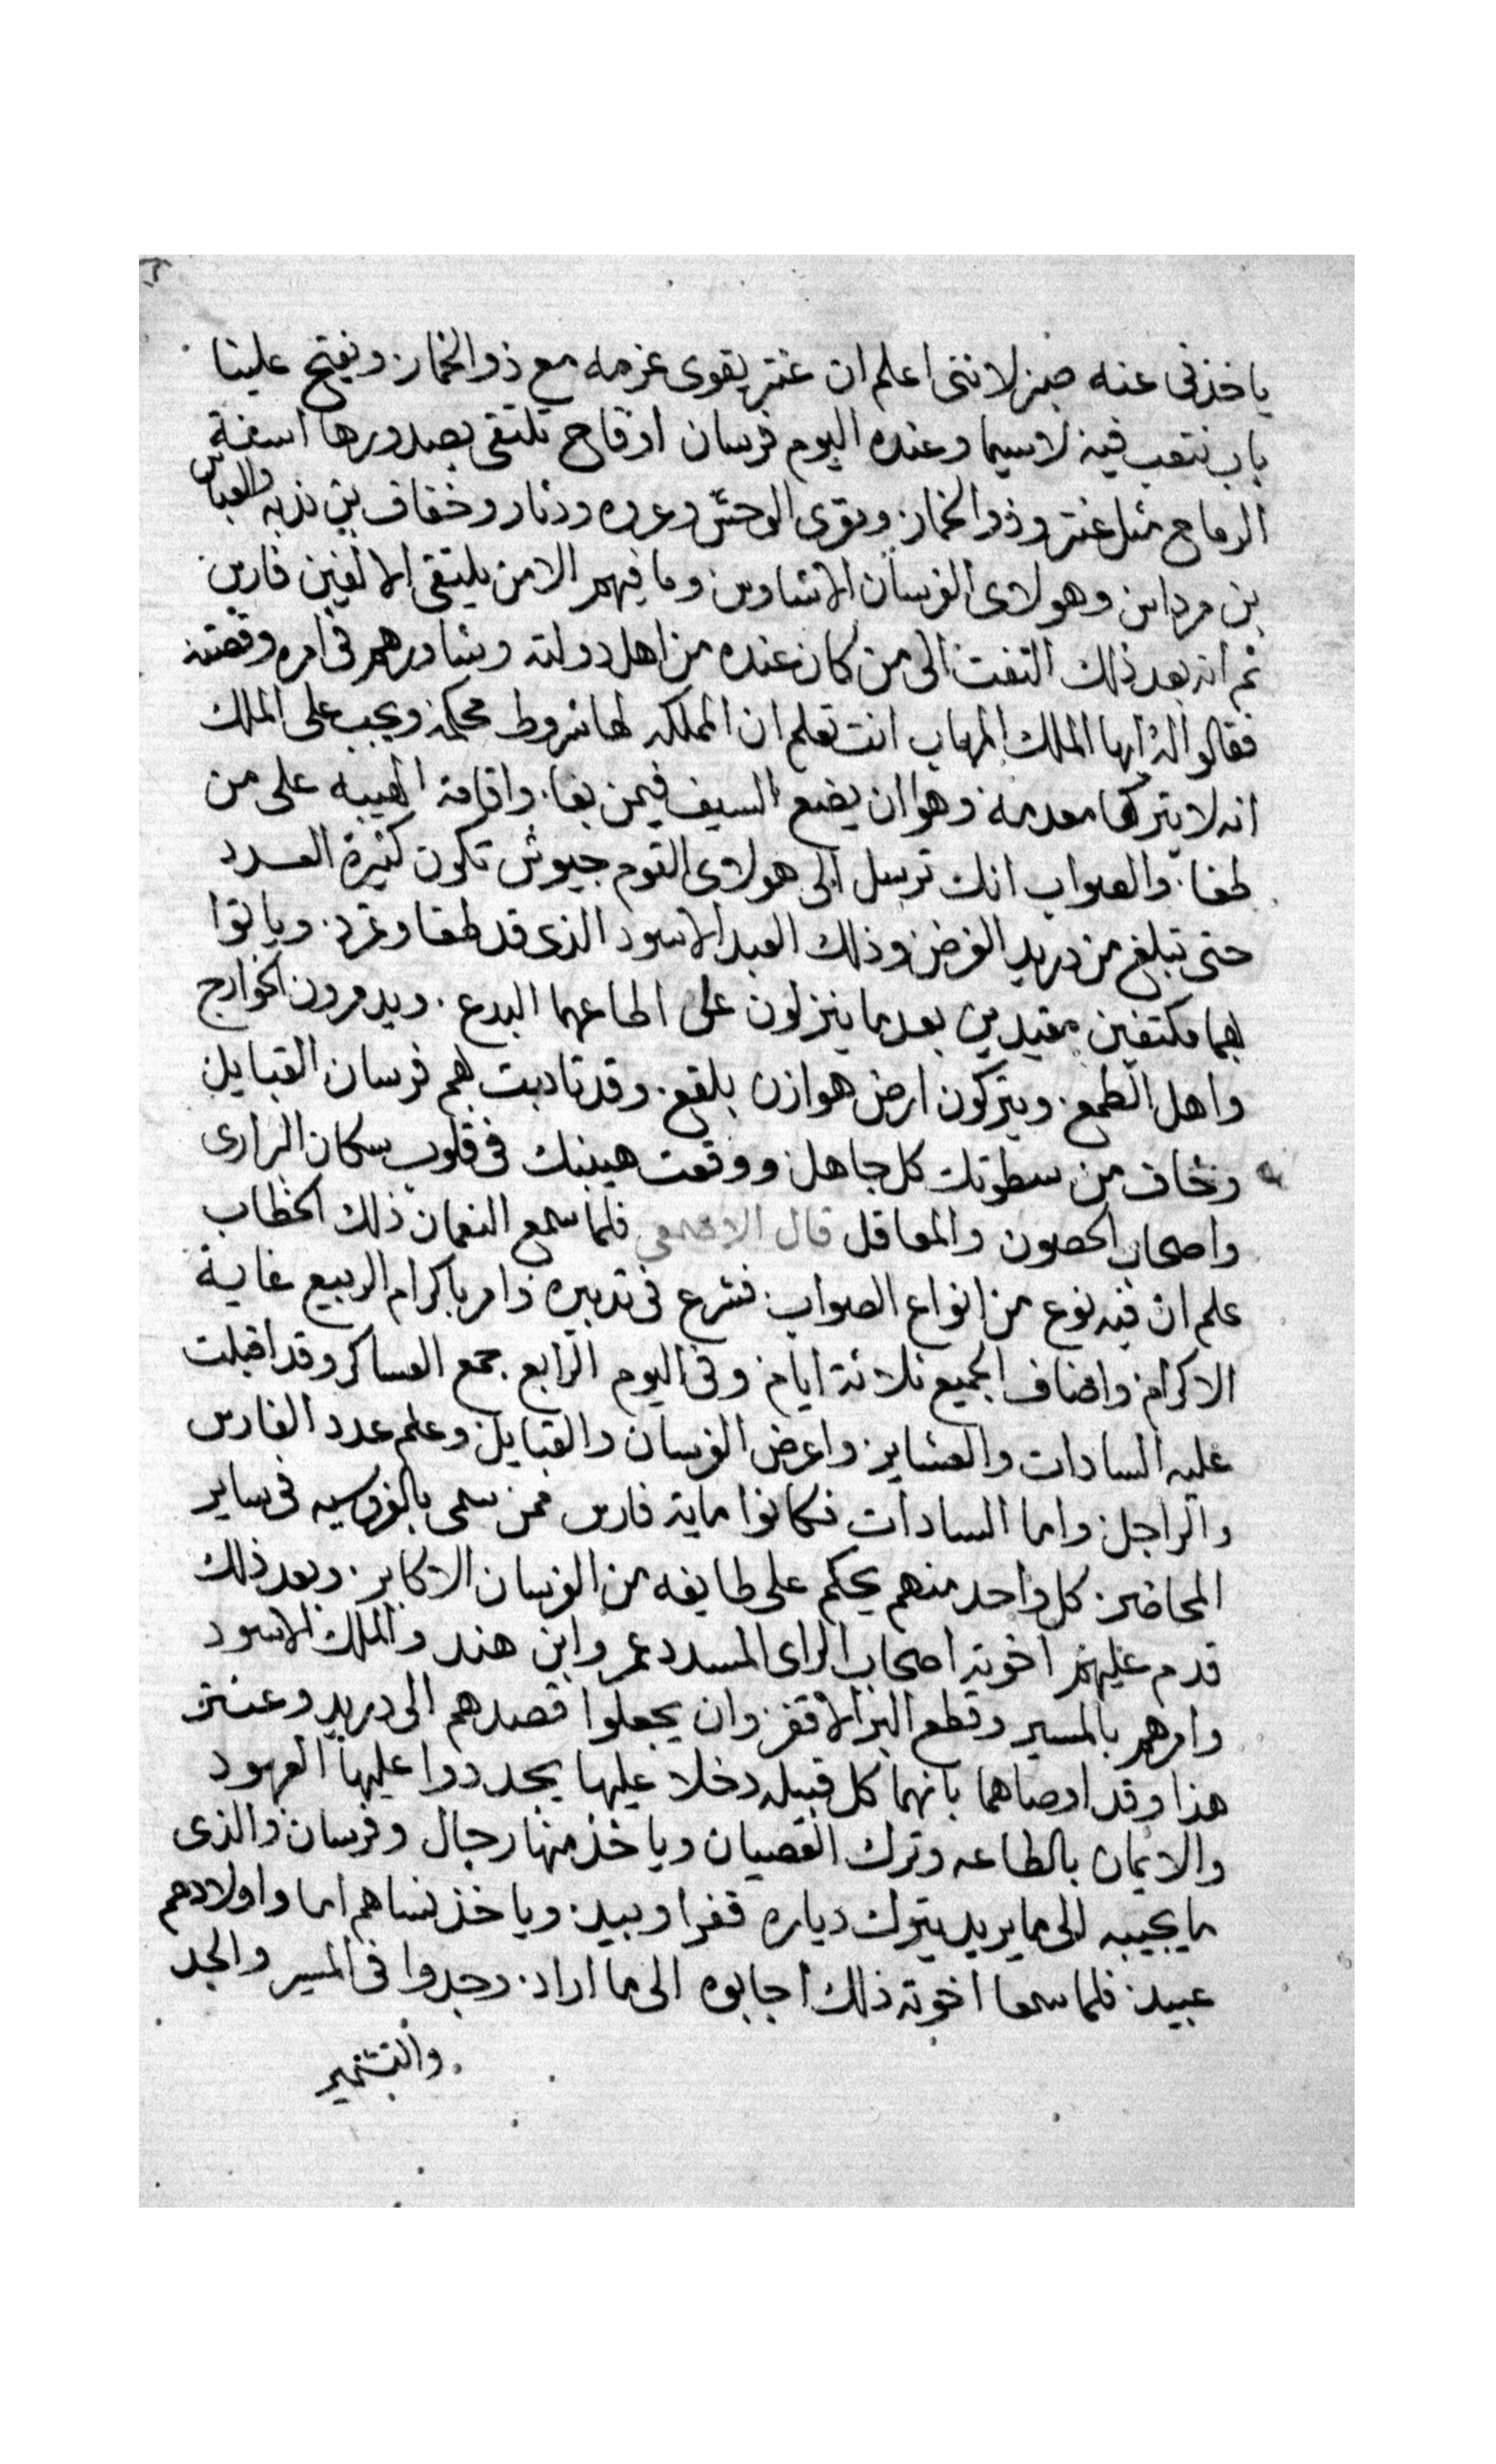 ياخذني عنه صبر لانني اعلم ان عنتر يقوى عزمه مع ذو الخمار. ويفتح علينا
باب نتعب فيه لاسيما وعنده اليوم فرسان اوقاح تلتقى بصدورها اسنة
الرماح مثل عنتر وذو الخمار. ومقرى الوحش وعروه ودثار وخفاف بن ندبه والعباس
بن مرداس وهولاى الفرسان الاشاوس وما فيهم الا من يلتقى الالفين فارس
ثم انه بعد ذلك التفت الى من كان عنده من اهل دولته وشاورهم فى امره وقصته
فقالوا له ايها الملك المهاب انت تعلم ان المملكه لها شروط محكمه ويجب على الملك
انه لا يتركها معدمه وهو ان يضع السيف فيمن بغا. واقامة الهيبه على من
طغا. والصواب انك ترسل الى هولاى القوم جيوش تكون كثيرة العدد
حتى تبلغ من دريد الغرض وذلك العبد الاسود الذى قد طغا وتمرد. وياتوا
بهما مكتفين مقيدين بعد ما ينزلون على اطماعهما البدع. ويدمرون الخوارج
واهل الطمع. ويتركون ارض هوازن بلقع. وقد تادبت بهم فرسان القبايل
وتخاف من سطوتك كل جاهل ووقعت هيبتك فى قلوب سكان البرارى
واصحاب الحصون والمعاقل قال الاصمعي فلما سمع النعمان ذلك الخطاب
علم ان فيه نوع من انواع الصواب. فشرع فى تدبيره وامر باكرام الربيع غاية
الاكرام. واضاف الجميع ثلاثة ايام. وفى اليوم الرابع جمع العساكر وقد اقبلت
عليه السادات والعشاير. واعرض الفرسان والقبايل وعلم عدد الفارس
والراجل. واما السادات فكانوا ماية فارس ممن سمى بالفروسيه فى ساير
المحاضر. كل واحد منهم يحكم على طايفه من الفرسان الاكابر. وبعد ذلك
قدم عليهم اخوته اصحاب الراى المسدد عمرو ابن هند والملك الاسود
وامرهم بالمسير وقطع البر الاقفر. وان يجعلوا قصدهم الى دريد وعنتر
هذا وقد اوصاهما بانهما كل قبيله دخلا عليها يجددوا عليها العهود
والايمان بالطاعه وترك العصيان وياخذ منها رجال وفرسان والذى
ما يجيبه الى ما يريد يترك دياره قفرا وبيد. وياخذ نساهم اما واولادهم
عبيد. فلما سمعا اخوته ذلك اجابوه الى ما اراد. وجدوا فى المسير والجد
والتشمير